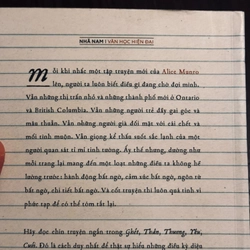 NHÃ NAM | VĂN HỌC HIỆN ĐẠI
Mỗi khi nhấc một tập truyện mới của Alice Munro
lên, người ta luôn biết điều gì đang chờ đợi mình.
Vẫn những thị trấn nhỏ và những thành phố mới ở Ontario
và British Columbia. Vẫn những người trẻ đầy gai góc và
mâu thuẫn. Vẫn những người già đối mặt với cái chết và
mối tình muộn. Vẫn giọng kể thấu suốt sắc lạnh của một
người quan sát tỉ mỉ tinh tường. Ấy thế nhưng, dường như
mỗi trang lại mang đến một loạt những điều ta không hề
lường trước: hành động bất ngờ, cảm xúc bất ngờ, ngôn từ
bất ngờ, chi tiết bất ngờ. Và cốt truyện thì luôn quá tinh vi
phức tạp để có thể tóm tắt lại.
Hãy đọc chín truyện ngắn trong Ghét, Thân, Thương, Yêu,
Cưới. Đó là cách duy nhất để thật sự hiểu những điều kỳ diệu